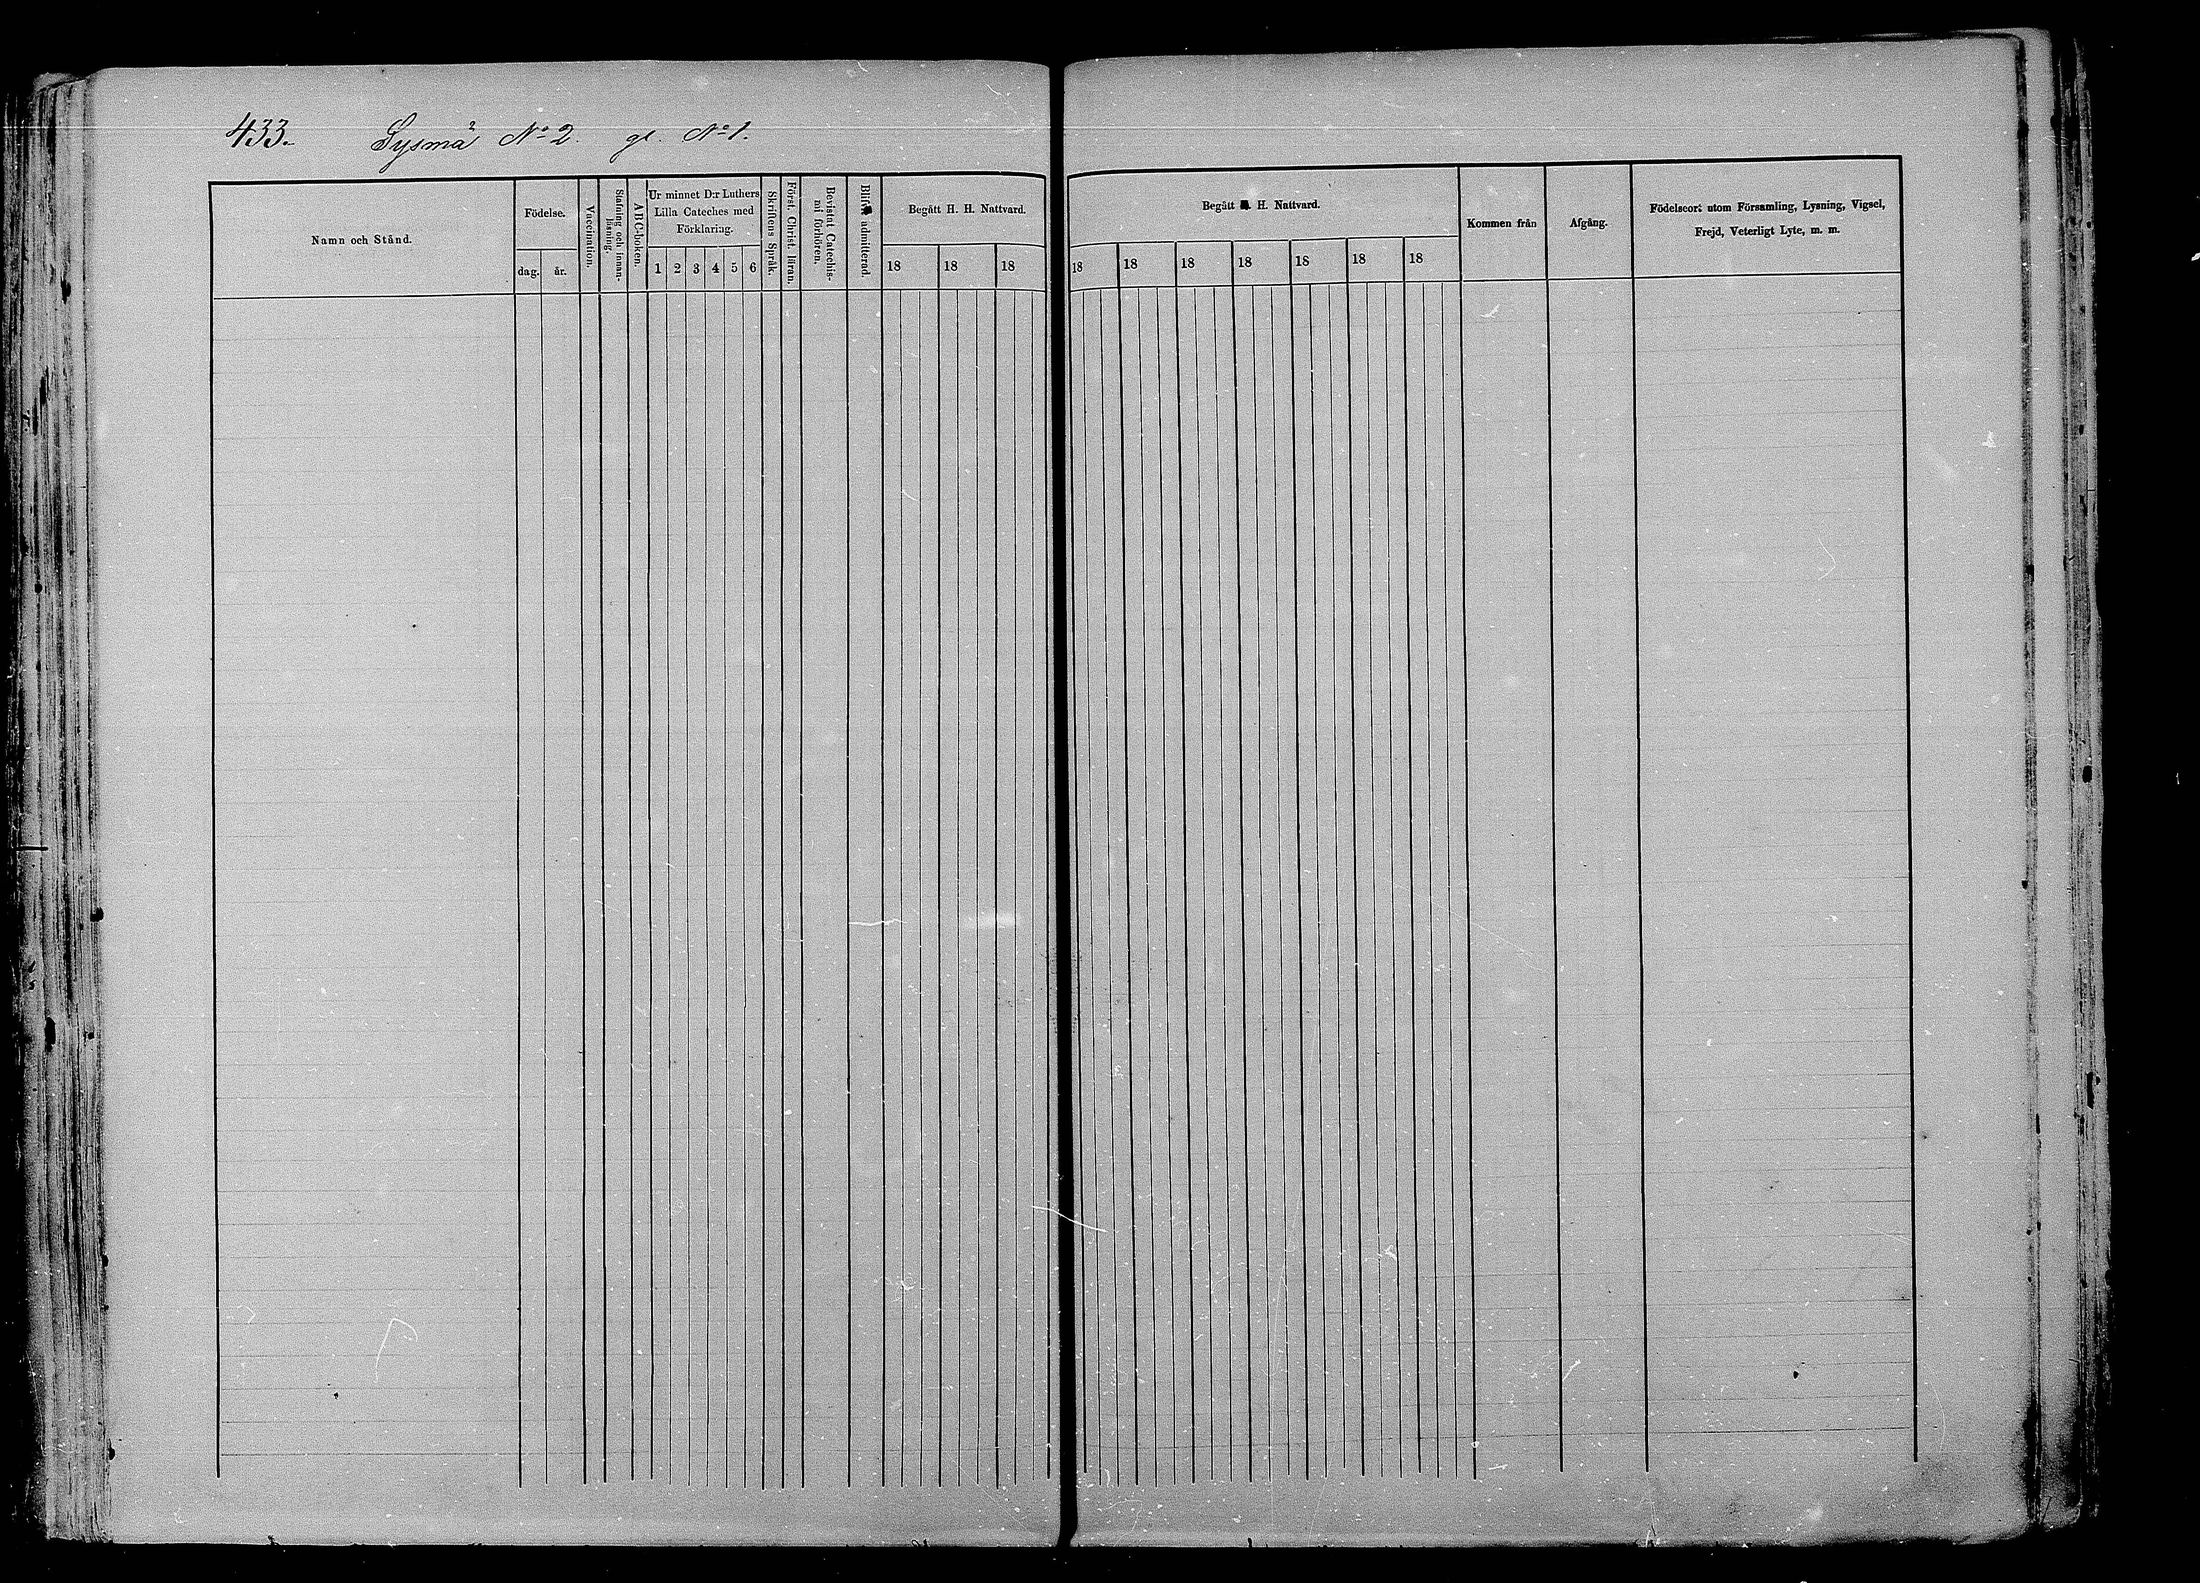 433. Sysmä No 2. gl. No 1.
Namn och Stånd.
Födelse.
dag. år.
Vaccination.
Stafning och innan-
läsning.
ABC-boken.
Ur minnet D:r Luthers
Lilla Cateches med
Förklaring.
1 2 3 4 5 6
Skriftens Språk.
Först. Christ. läran.
Bevistat Catechis-
mi förhören.
admitterad.
Begått H. H. Nattvard.
18 18 18
Begått H. Nattvard.
18 18 18 18 18 18 18
Kommen från
Afgång.
Födelseort utom Församling, Lysning, Vigsel,
Frejd, Veterligt Lyte, m. m.